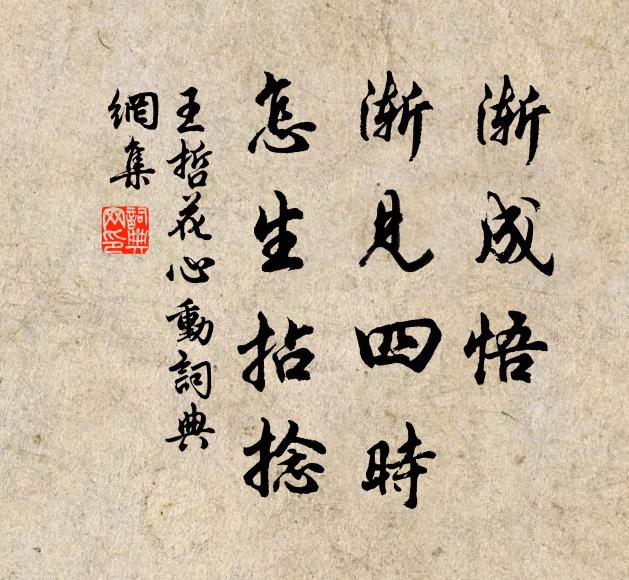 渐成悟
渐見四時
怎生拈捻
王哲花心動詞典
網集
詞典
网印